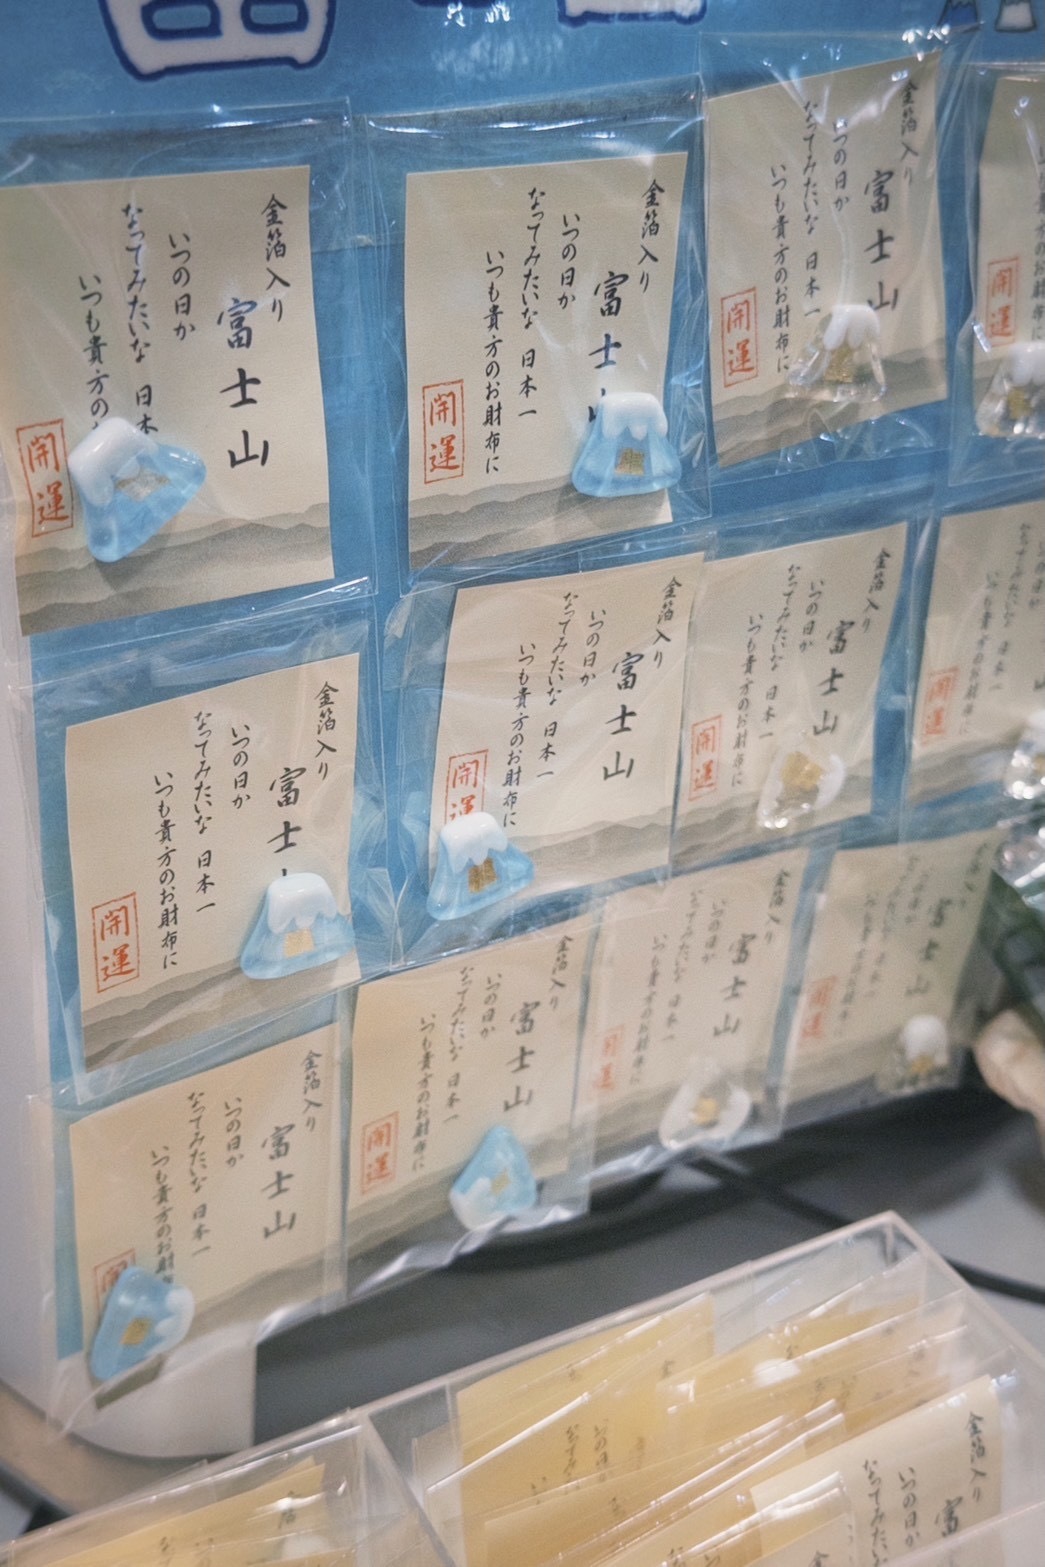 金箔入り
富士山
いつの日か
なってみたいな 日本
いつも貴方の
開運
金箔入り
富士
いつの日か
なってみたいな 日本一
いつも貴方のお財布に
開運
金箔入り
富士山
いつの日か
なってみたいな 日本一
いつも貴方のお財布に
開運
開運
金箔入り
富士
いつの日か
なってみたいな 日本一
いつも貴方のお財布に
開運
金箔入り
富士山
いつの日か
なってみたいな 日本一
いつも貴方のお財布に
開運
金箔入り
富士山
いつの日か
なってみたいな 日本一
いつも貴方のお財布に
開運
開運
金箔入り
富士山
いつの日か
なってみたいな 日本一
いつも貴方のお財布
開
金箔入り
富士山
いつの日か
なってみたいな 日本一
いつも貴方のお財布に
開運
金箔入り
富士山
いつの日か
なってみたいな 日本一
いつも貴方のお財布に
開運
金箔入り
富士山
開運
金箔入り
富
いつの日か
なってみたい